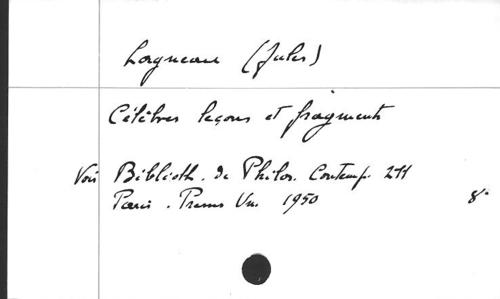 Lagneau (Jules)
Célèbres leçons et fragments
Voir Biblioth. de Philos. Contemp. 211
Paris. Presses Un. 1950 8°